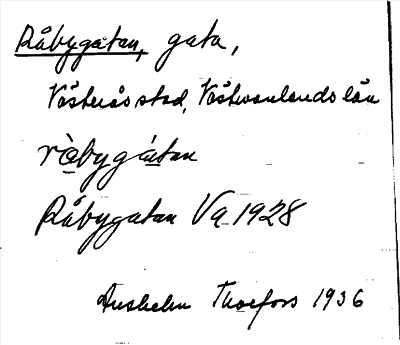 Råbygatan, gata,
Västerås stad, Västmanlands län
rå̀bygátan
Råbygatan Va 1928
Anshelm Thorfors 1936